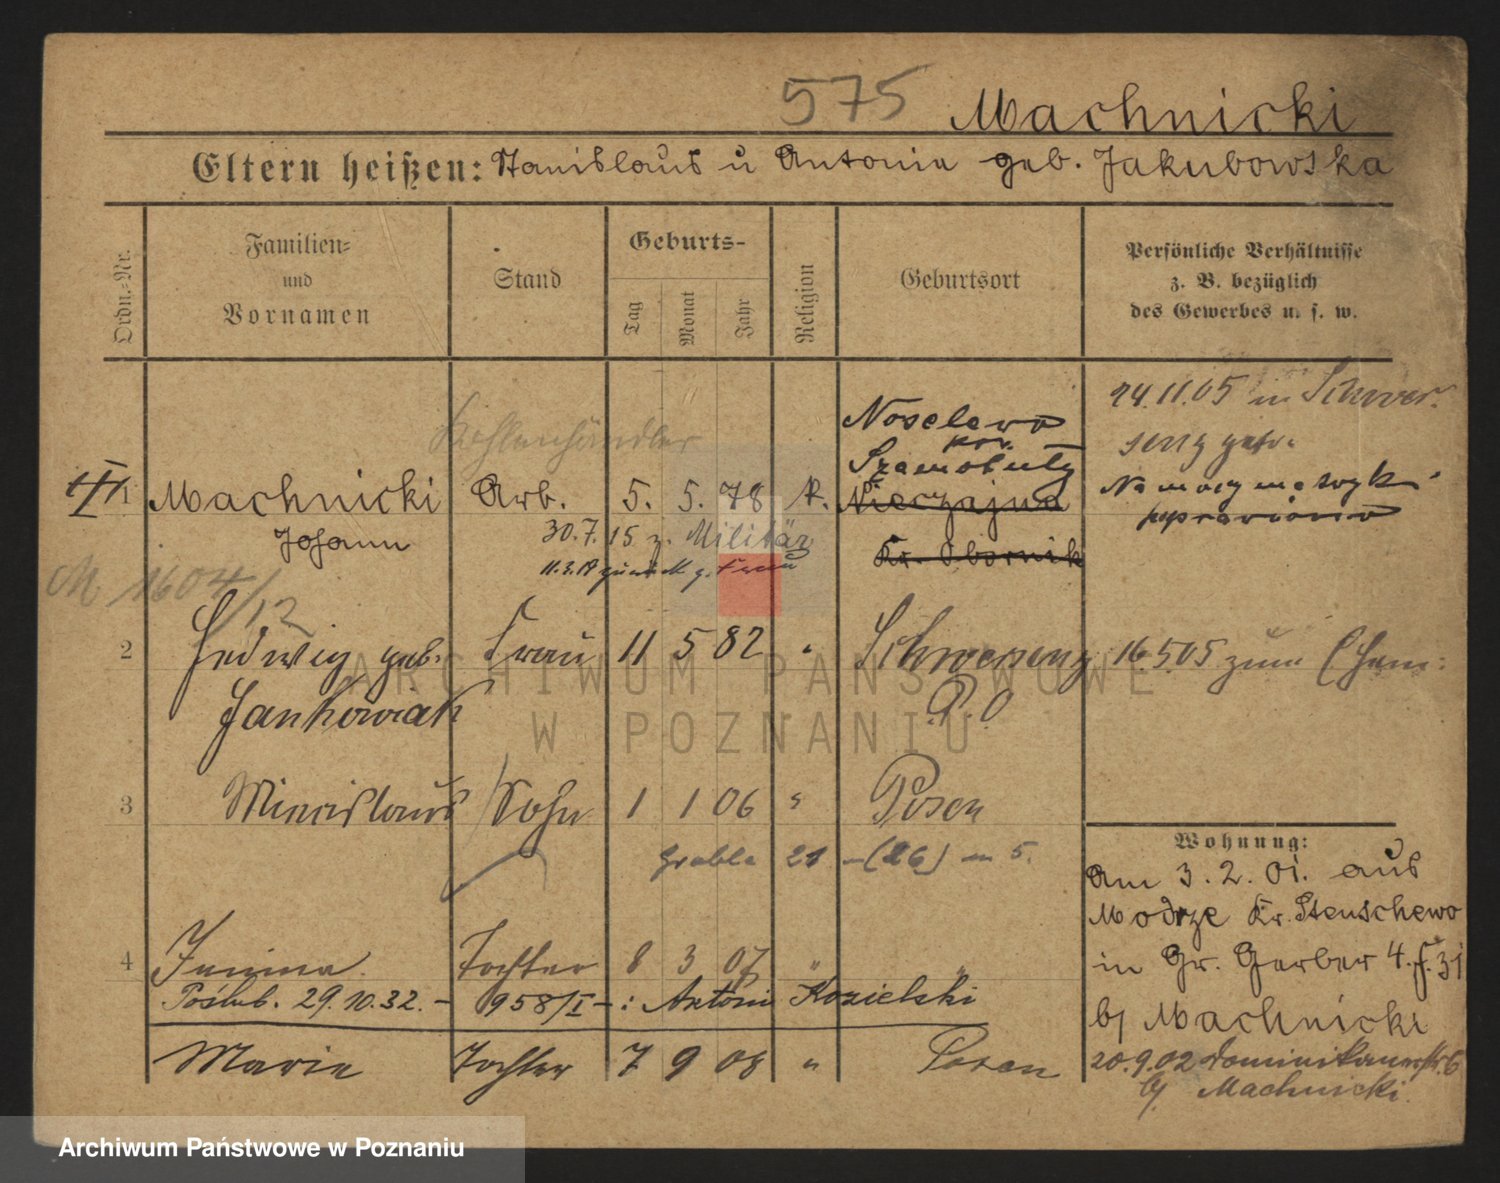 575 Machnicki
Eltern heißen: Stanislaus u Antonie geb. Jakubowska
Ordn.-Nr.
Familien-
und
Vornamen
Stand
Geburts-
Tag
Monat
Jahr
Religion
Geburtsort
Persönliche Verhältnisse
z. B. bezüglich
des Gewerbes u. s. w.
Kohlenhändler
Noselewo
pow.
Szamotuły
24.11.05 in Schwer-
senz getr.
1 Machnicki Arb. 5. 5. 78 k. Nieczajna
Johann
Kr. Obornik
Na mocy metryki
poprawiono
30.7.15 z. Militär
M 1604/12
2 Hedwig geb. Frau 11 5 82 " Schwersenz
Jankowiak
P. O
16.5.05 zum
3 Miecislaus Sohn 1 1 06 " Posen
Grobla 21 - (26) m 5.
4 Janina Tochter 8 3 07 " "
Poślub. 29.10.32. - 958/I - : Antoni Kozielski
Marie Tochter 7 9 08 " Posen
Wohnung:
Am 3. 2. 01. aus
Modrze Kr. Stenschewo
in Gr. Gerber 4.
b/ Machnicki
20.9.02 Dominikanerstr. 6
b/ Machnicki.
ARCHIWUM PAŃSTWOWE
W POZNANIU
Archiwum Państwowe w Poznaniu